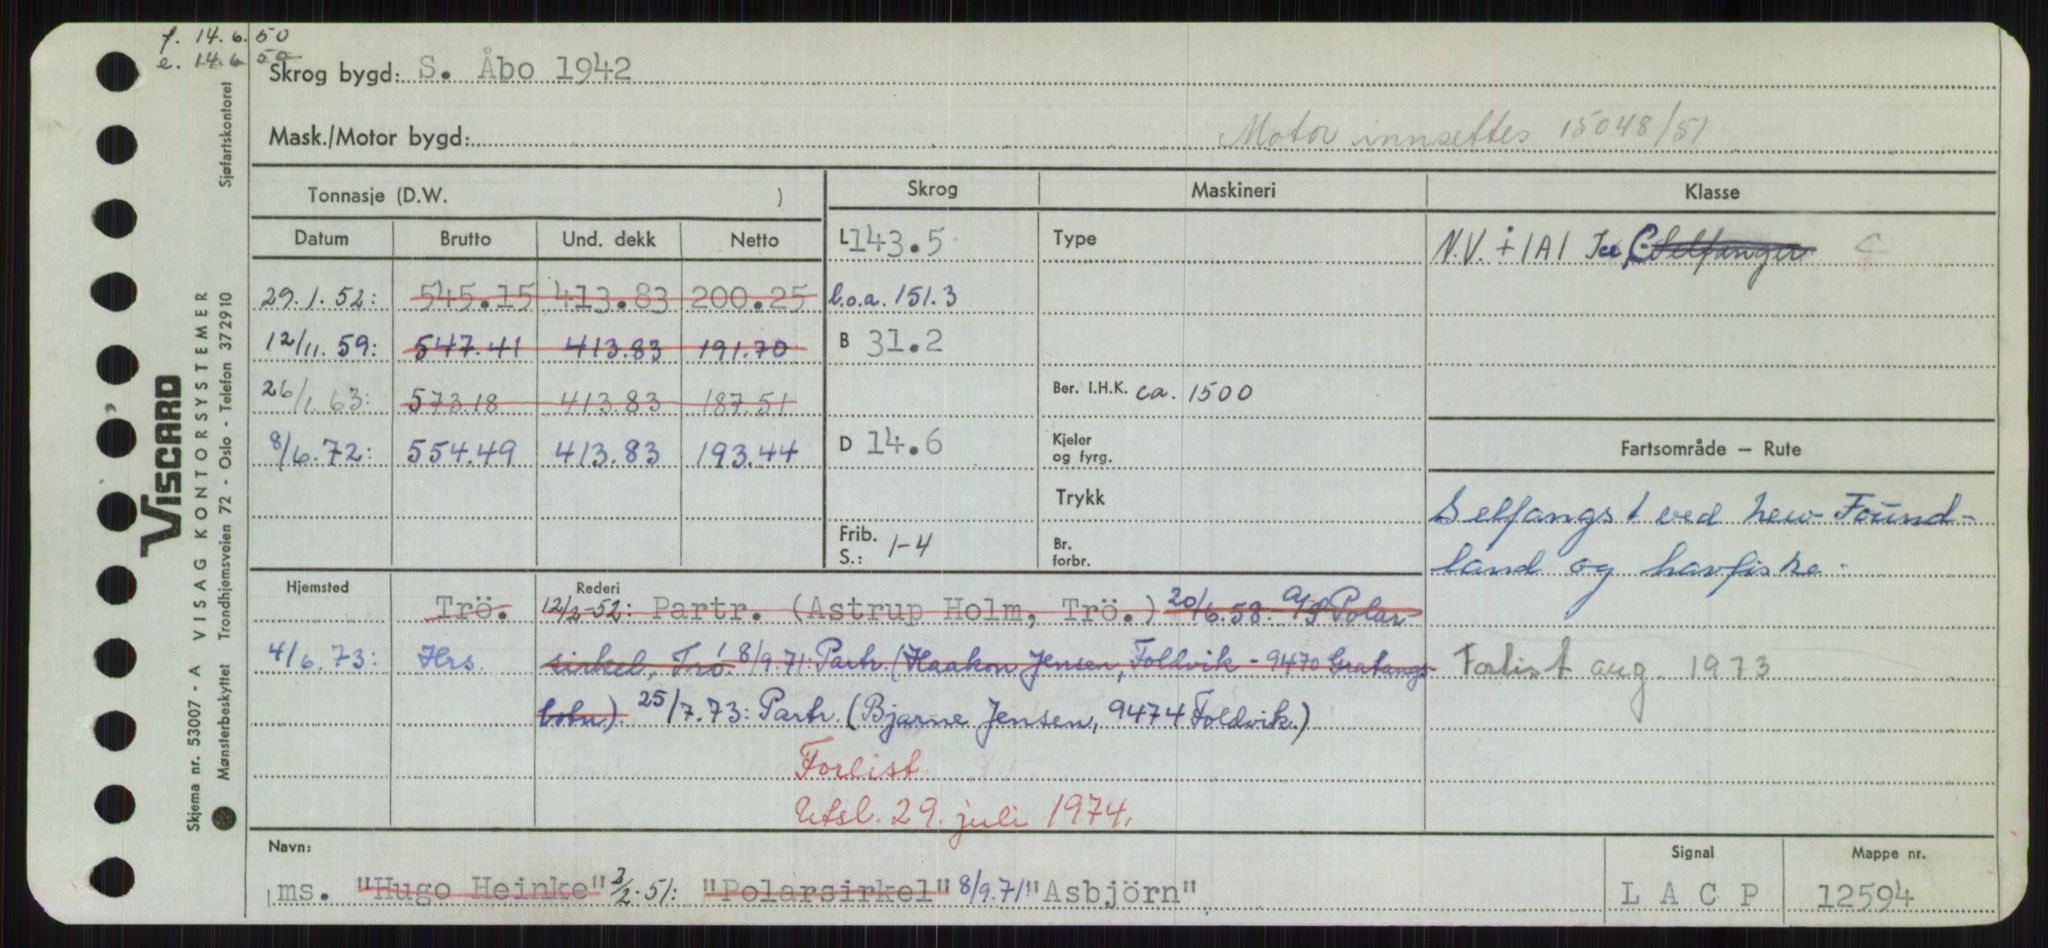 f. 14.6.50
e. 14.6.50
Skrog bygd: S. Åbo 1942
Mask./Motor bygd: Motor innsettes 15048/51
Tonnasje (D.W. ) Skrog Maskineri Klasse
Datum Brutto Und. dekk Netto L 143.5 Type N.V. + 1A1 Ice, C Selfanger
29.1.52: 545.15 413.83 200.25 l.o.a. 151.3
12/11.59: 547.41 413.83 191.70 B 31.2
26/1.63: 573.18 413.83 187.51 Ber. I.H.K. ca. 1500
8/6.72: 554.49 413.83 193.44 D 14.6 Kjeler og fyrg. Fartsområde – Rute
Trykk Selfangst ved New Found-
Frib. S.: 1-4 Br. forbr. land og havfiske.
Hjemsted Rederi
Trö. 12/2-52: Partr. (Astrup Holm, Trö.) 20/6.58. A/S Polar-
4/6.73: Hrs. sirkel, Trö. 8/9.71: Partr. (Haakon Jensen, Foldvik - 9470 Gratangs- Forlist aug. 1973
botn). 25/7.73: Partr. (Bjarne Jensen, 9474 Foldvik.)
Forlist.
Utsl. 29. juli 1974.
Navn: Signal Mappe nr.
ms. "Hugo Heinke" 2/2-51: "Polarsirkel" 8/9.71: "Asbjörn" L A C P 12594
Sjøfartskontoret
VISCARD
Skjema nr. 53007 - A VISAG KONTORSYSTEMER
Mønsterbeskyttet Trondhjemsveien 72 - Oslo - Telefon 372910